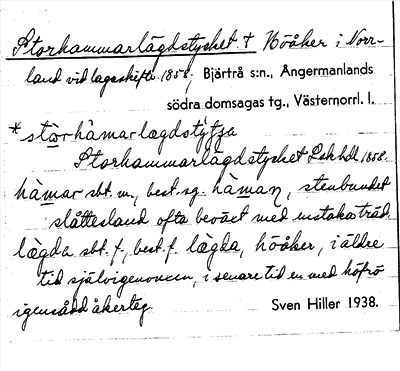 Storhammarlägdstycket † Höåker i Norr-
land vid lagaskifte 1858; Bjärtrå s:n., Ångermanlands
södra domsagas tg., Västernorrl. l.
*stor hàmar lægdstytja
Storhammarlägdstycket Lskhdl. 1858.
hàmar sbt. m., best. sg. hàman, stenbundet
slåttesland ofta beväxt med enstaka träd,
lægda sbt. f., best. f. lægda, höåker, i äldre
tid självigenvuxen, i senare tid en med höfrö
igensådd åkerteg
Sven Hiller 1938.